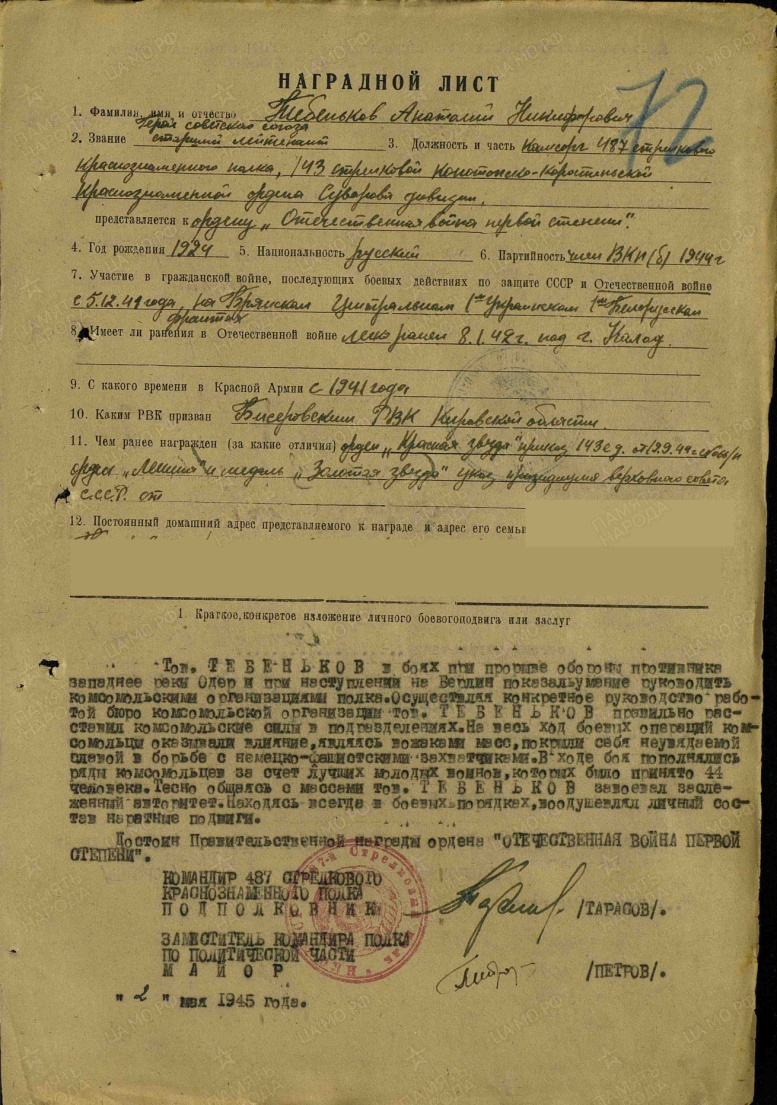 12
НАГРАДНОЙ ЛИСТ
1. Фамилия, имя и отчество Тебеньков Анатолий Никифорович
Герой советского союза
2. Звание старший лейтенант 3. Должность и часть Комсорг 487 стрелкового
Краснознаменного полка, 143 стрелковой Конотопско-Коростеньской
Краснознаменной ордена Суворова дивизии.
представляется к ордену „Отечественная война первой степени".
4. Год рождения 1924 5. Национальность русский 6. Партийность член ВКП(б) 1944г
7. Участие в гражданской войне, последующих боевых действиях по защите СССР и Отечественной войне
с 5.12.41 года, на Брянском Центральном 1ом Украинском 1ом Белорусском
фронтах
8. Имеет ли ранения в Отечественной войне легко ранен 8.1.42г. под г.
9. С какого времени в Красной Армии с 1941 года
10. Каким РВК призван Бисеровским РВК Кировской области.
11. Чем ранее награжден (за какие отличия) орден „Красная звезда" приказ 143 с.д. от
орден „Ленина" и медаль „Золотая звезда" указ президиума верховного совета
С.С.С.Р. от
12. Постоянный домашний адрес представляемого к награде и адрес его семьи
1. Краткое, конкретное изложение личного боевогоподвига или заслуг
Тов. ТЕБЕНЬКОВ в боях при прорыве обороны противника
западнее реки Одер и при наступлении на Берлин показалъумение руководить
комсомольскими организациями полка.Осуществляя конкретное руководство рабо-
той бюро комсомольской организации тов. ТЕБЕНЬКОВ правильно рас-
ставил комсомольские силы в подразделениях.На весь ход боевых операций ком-
сомольцы оказывали влияние,являясь вожаками масс,покрыли себя неувядаемой
славой в борьбе с немецко-фашистскими захватчиками.В ходе боя пополнялись
ряды комсомольцев за счет лучших молодых воинов,которых было принято 44
человека.Тесно общаясь с массами тов. ТЕБЕНЬКОВ завоевал заслу-
женный авторитет.Находясь всегда в боевых порядках,воодушевлял личный сос-
тав наратные подвиги.
Достоин Правительственной награды ордена "ОТЕЧЕСТВЕННАЯ ВОЙНА ПЕРВОЙ
СТЕПЕНИ".
КОМАНДИР 487 СТРЕЛКОВОГО
КРАСНОЗНАМЕННОГО ПОЛКА
ПОДПОЛКОВНИК /ТАРАСОВ/.
ЗАМЕСТИТЕЛЬ КОМАНДИРА ПОЛКА
ПО ПОЛИТИЧЕСКОЙ ЧАСТИ
МАЙОР /ПЕТРОВ/.
" 2 " мая 1945 года.